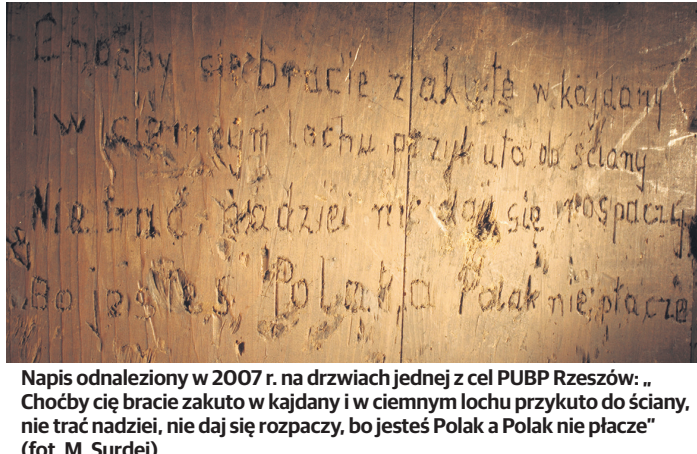 Choćby cię bracie zakuto w kajdany
I w ciemnym lochu przykuto do ściany
Nie trać nadziei nie daj się rospaczy
Bo jesteś Polak, a Polak nie płacze
Napis odnaleziony w 2007 r. na drzwiach jednej z cel PUBP Rzeszów: „
Choćby cię bracie zakuto w kajdany i w ciemnym lochu przykuto do ściany,
nie trać nadziei, nie daj się rozpaczy, bo jesteś Polak a Polak nie płacze”
(fot. M. Surdej)